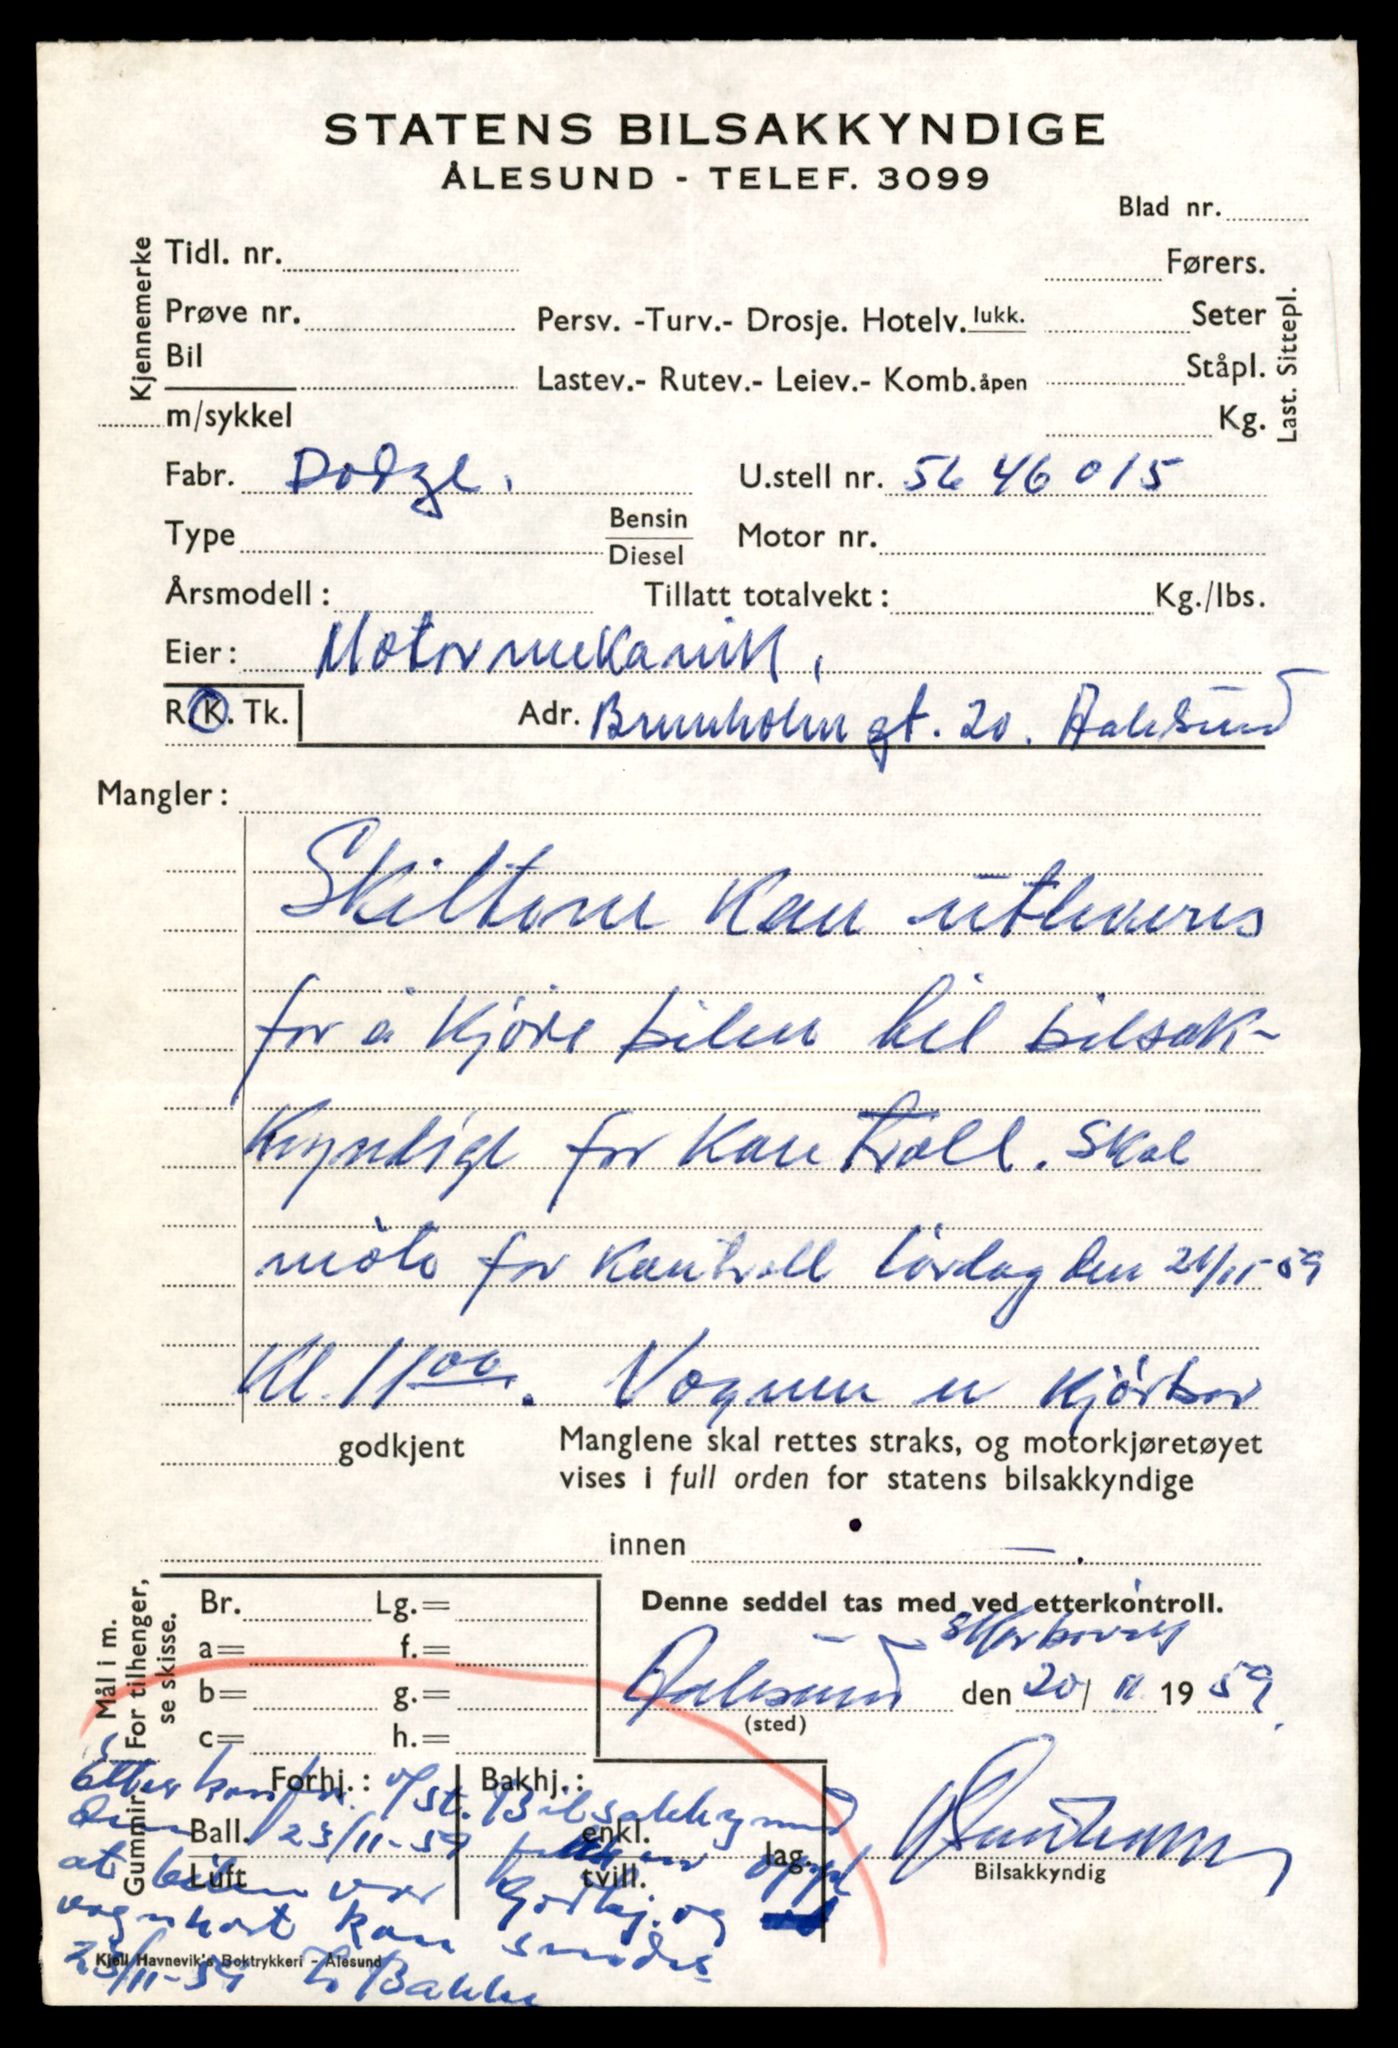 STATENS BILSAKKYNDIGE
ÅLESUND - TELEF. 3099
Blad nr.
Kjennemerke
Tidl. nr.
Førers.
Prøve nr.
Persv. -Turv.- Drosje. Hotelv. lukk.
Seter
Bil
Lastev.- Rutev.- Leiev.- Komb. åpen
Ståpl.
m/sykkel
Kg.
Last. Sittepl.
Fabr. Dodge.
U.stell nr. 5646015
Type
Bensin
Diesel
Motor nr.
Årsmodell :
Tillatt totalvekt :
Kg./lbs.
Eier : Motormekanikk,
R. K. Tk.
Adr. Brunholm gt. 20. Aalesund
Mangler :
Skiltene kan utleveres
for å kjøre bilen til bilsak-
kyndige for kontroll. Skal
møte for kontroll lørdag den 21/11-59
Kl. 11 00. Vognen er kjørbar
godkjent
Manglene skal rettes straks, og motorkjøretøyet
vises i full orden for statens bilsakkyndige
innen
Mål i m.
For tilhenger,
se skisse.
Br. Lg.=
a= f.=
b= g.=
c= h.=
Denne seddel tas med ved etterkontroll.
Aalesund den 20/11 1959.
(sted)
Gummir.
Forhj. : Bakhj. :
Ball. enkl. lag.
Luft tvill.
Bilsakkyndig
Etter m/st. Bilsakkynd
den 23/11-59 oppl
at bilen var Godkj. og
vognkort kan sendes
23/11-59 Bakke
Kjell Havnevik's Boktrykkeri - Ålesund